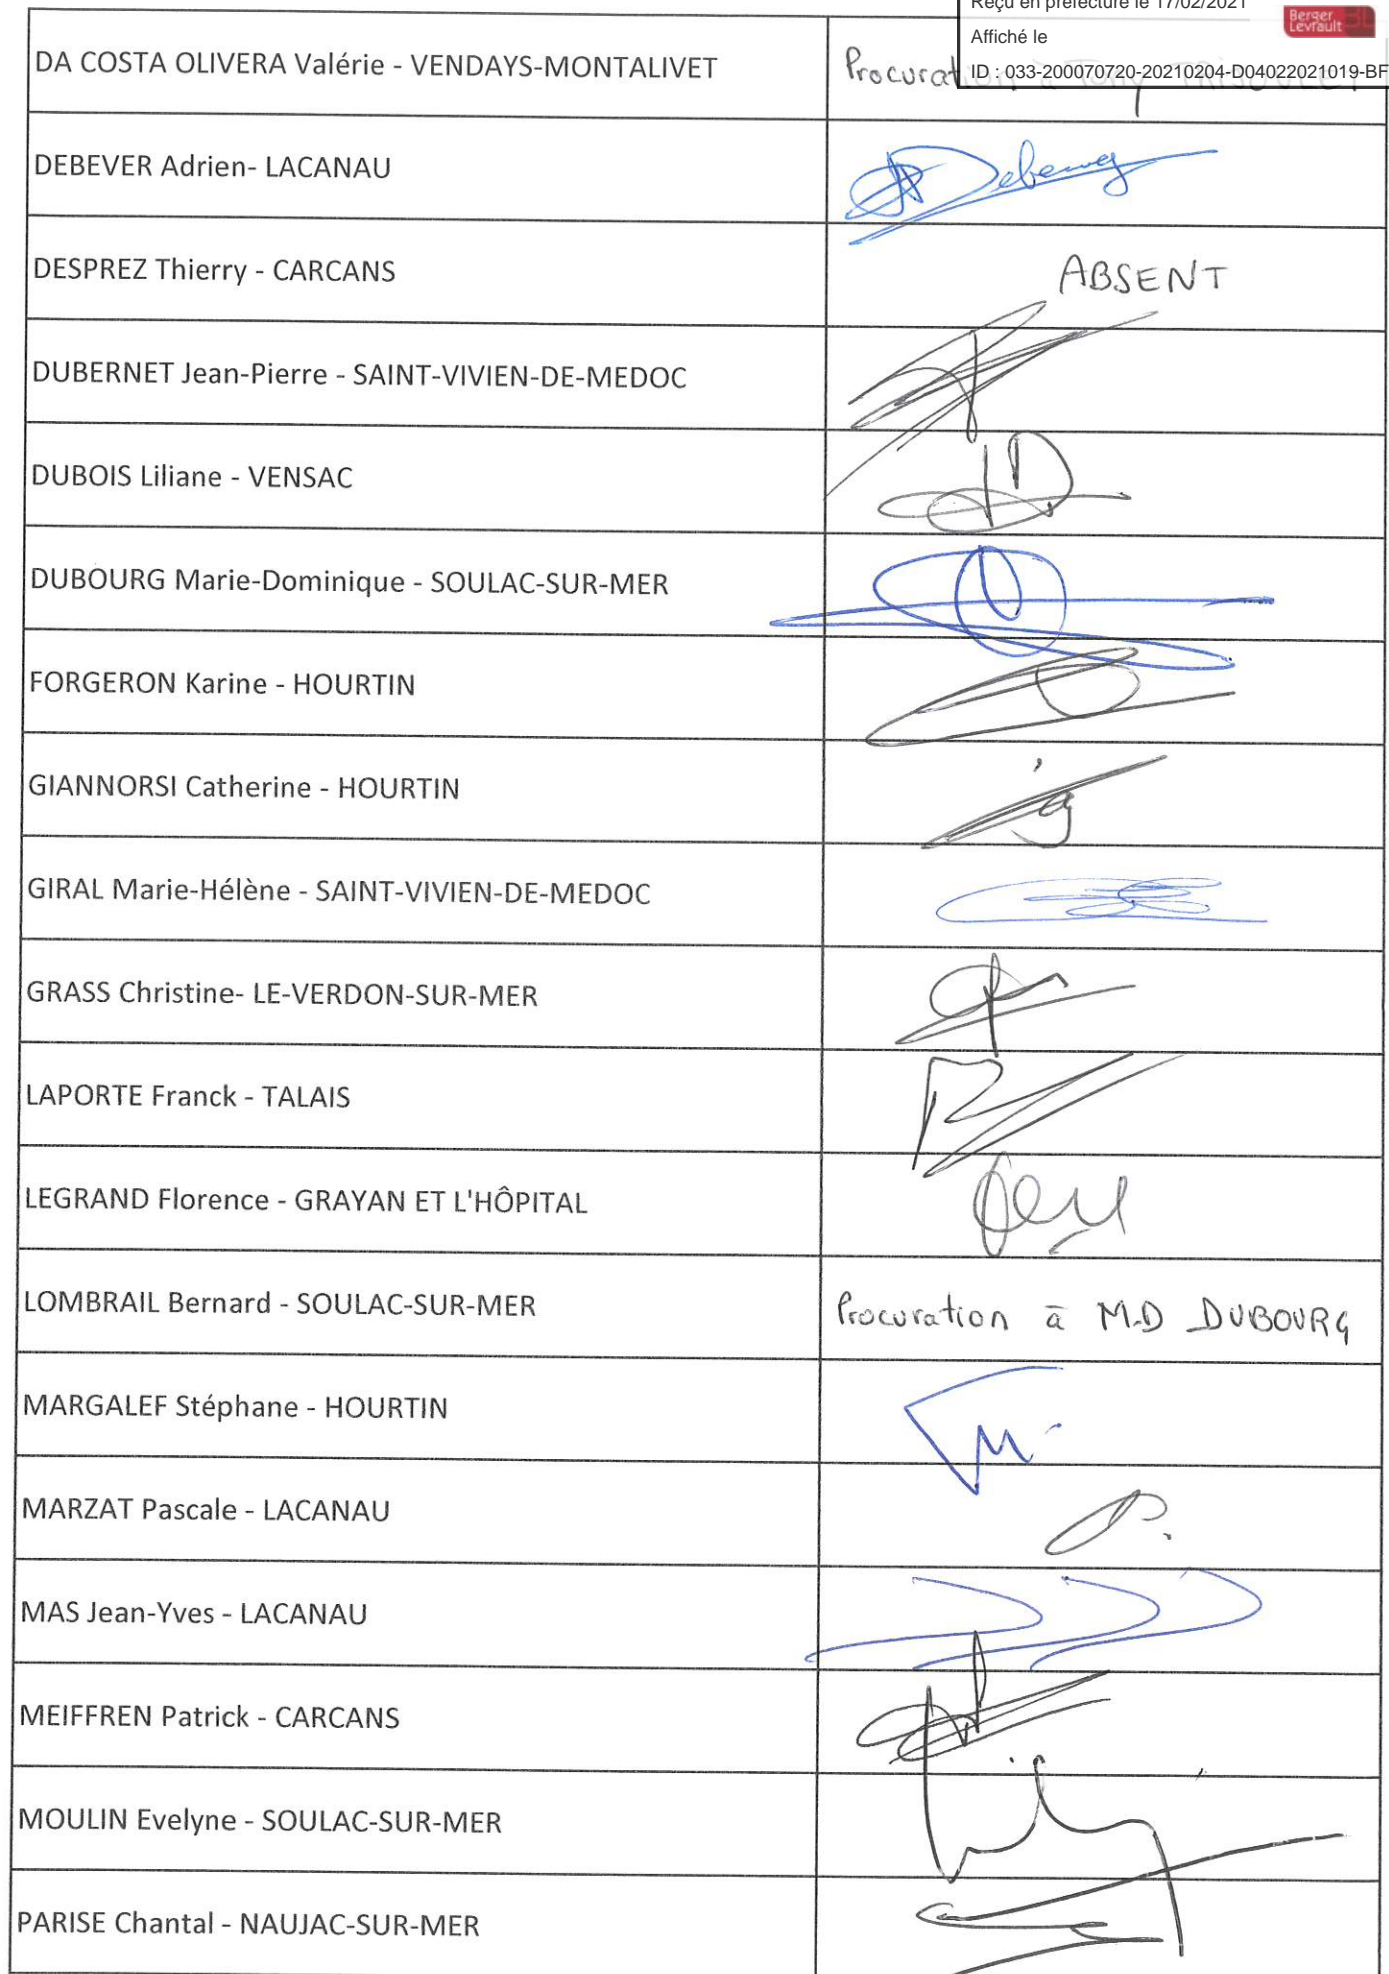 Reçu en préfecture le 17/02/2021
Berger
Levrault
Affiché le
ID : 033-200070720-20210204-D04022021019-BF
DA COSTA OLIVERA Valérie - VENDAYS-MONTALIVET
DEBEVER Adrien- LACANAU
DESPREZ Thierry - CARCANS ABSENT
DUBERNET Jean-Pierre - SAINT-VIVIEN-DE-MEDOC
DUBOIS Liliane - VENSAC
DUBOURG Marie-Dominique - SOULAC-SUR-MER
FORGERON Karine - HOURTIN
GIANNORSI Catherine - HOURTIN
GIRAL Marie-Hélène - SAINT-VIVIEN-DE-MEDOC
GRASS Christine- LE-VERDON-SUR-MER
LAPORTE Franck - TALAIS
LEGRAND Florence - GRAYAN ET L'HÔPITAL
LOMBRAIL Bernard - SOULAC-SUR-MER Procuration à M.D DUBOURG
MARGALEF Stéphane - HOURTIN
MARZAT Pascale - LACANAU
MAS Jean-Yves - LACANAU
MEIFFREN Patrick - CARCANS
MOULIN Evelyne - SOULAC-SUR-MER
PARISE Chantal - NAUJAC-SUR-MER